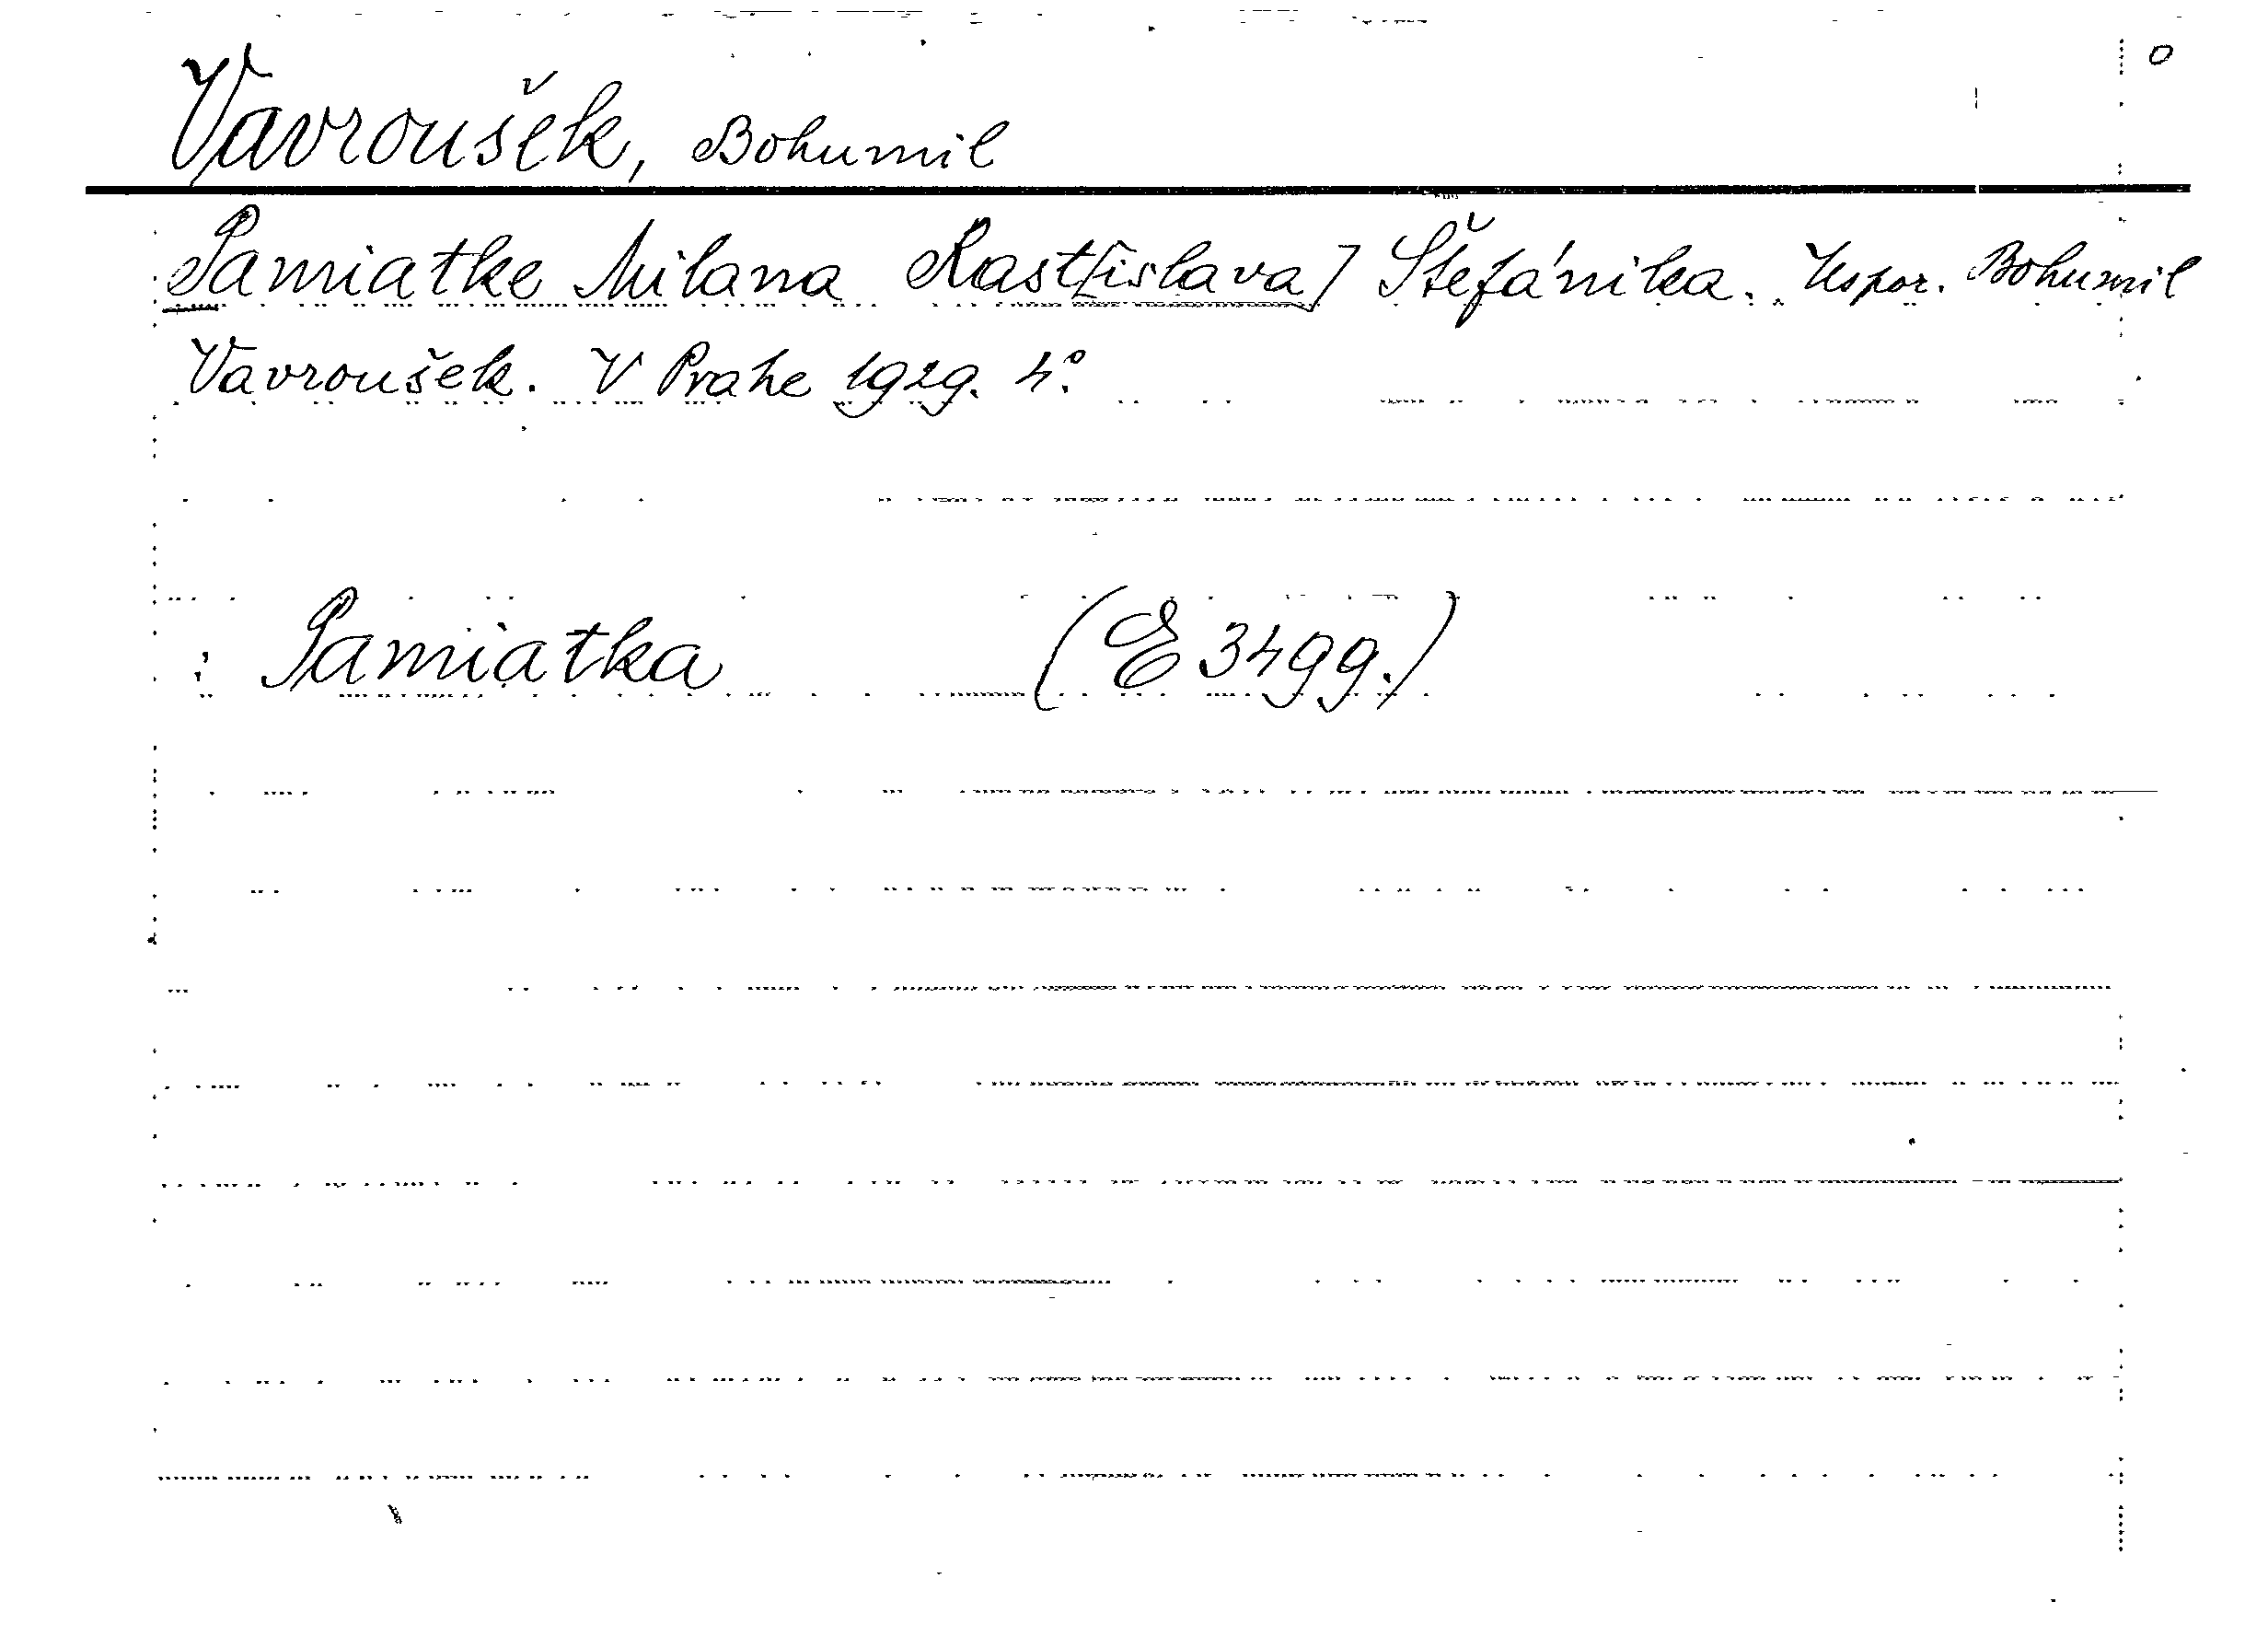 Vavroušek, Bohumil
Pamiatke Milana Rast[islava] Štefánika. Uspor. Bohumil
Vavroušek. V Prahe 1929. 4°.
: Pamiatka (E 3499.)